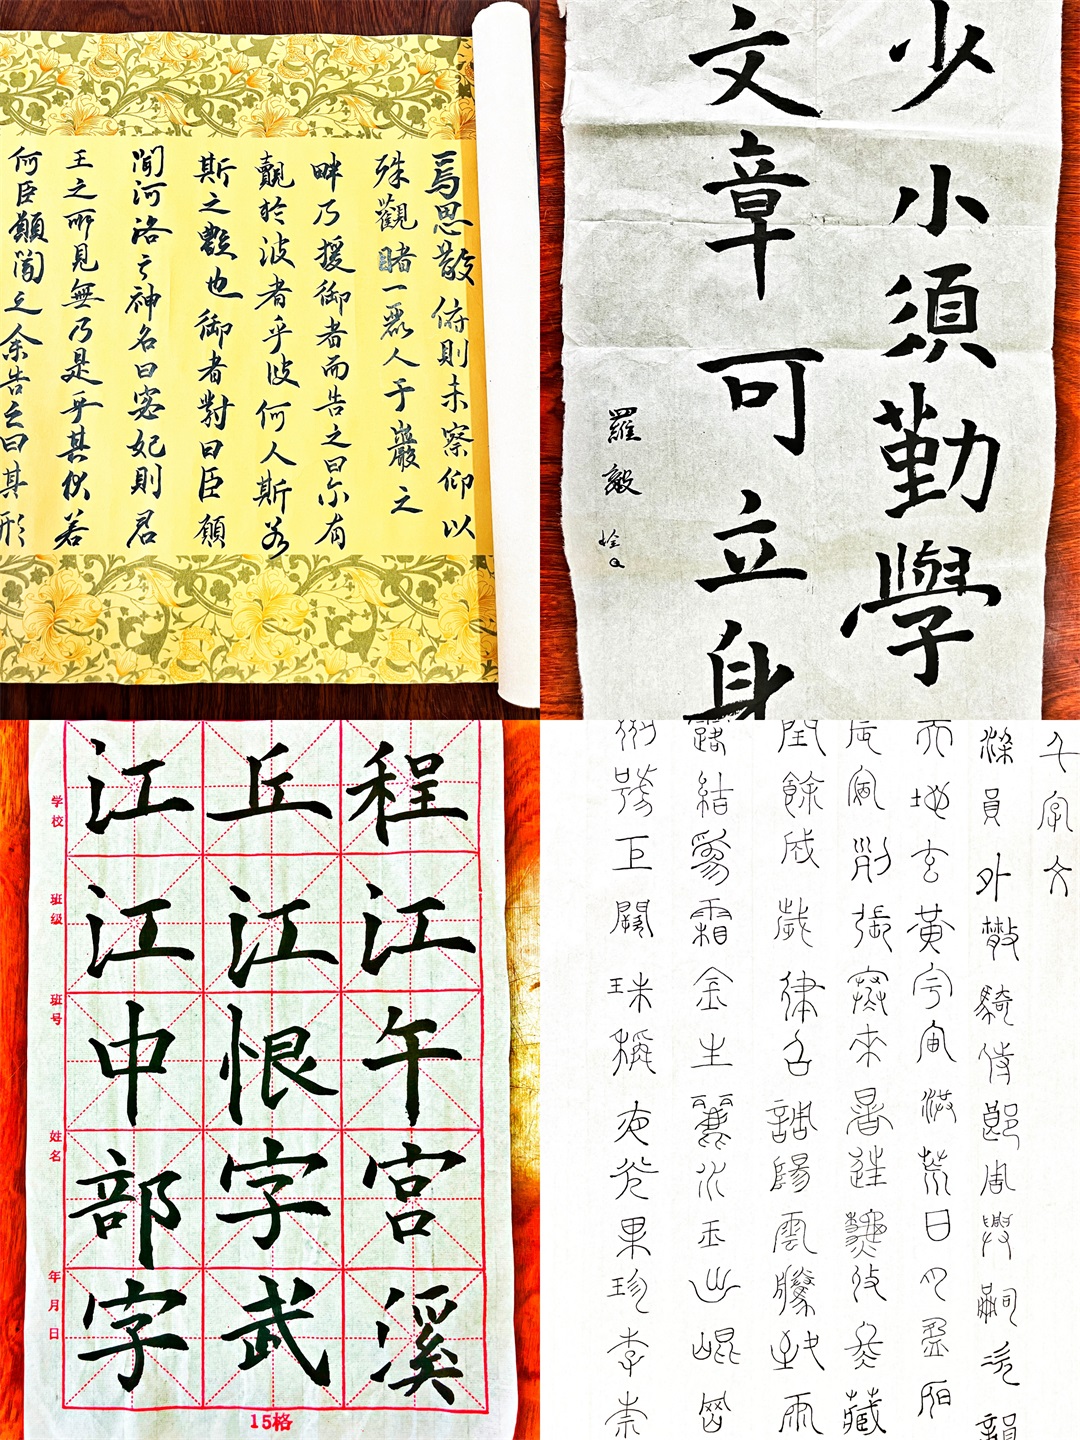 焉思散俯則未察仰以
殊觀睹一麗人于巖之
畔乃援御者而告之曰尔有
覿於波者乎彼何人斯若
斯之豔也御者對曰臣願
聞河洛之神名曰宓妃則君
王之所見無乃是乎其狀若
何臣願聞之余告之曰其形
少小須勤學
文章可立身
羅毅
程江午宮溪
丘江恨字武
江江中部字
学校
班级
班号
姓名
年月日
15格
千字文
員外散騎侍郎周興嗣次韻
天地玄黃宇宙洪荒日月盈昃
辰宿列張寒來暑往秋收冬藏
閏餘成歲律呂調陽雲騰致雨
露結爲霜金生麗水玉出崐岡
劍號巨闕珠稱夜光果珍李柰